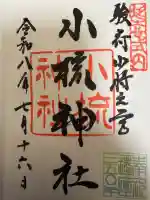 駿府少将之宮
小梳神社
令和八年七月十六日
小梳神社